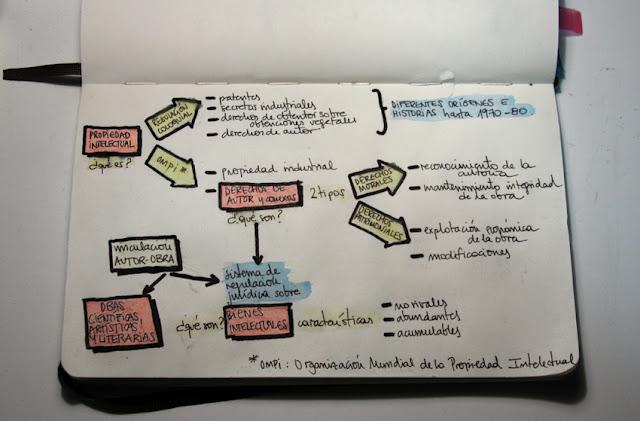 PROPIEDAD
INTELECTUAL
¿qué es?
COLOQUIAL
- patentes
- secretos industriales
- derechos de obtentor sobre
obtenciones vegetales
- derechos de autor
DIFERENTES ORÍGENES E
HISTORIAS hasta 1970-80
OMPI *
- propiedad industrial
- DERECHOS DE
AUTOR y conexos
¿qué son?
2 tipos
DERECHOS
MORALES
- reconocimiento de la
autoría
- mantenimiento integridad
de la obra
DERECHOS
PATRIMONIALES
- explotación económica
de la obra
- modificaciones
vinculación
AUTOR-OBRA
OBRAS
CIENTÍFICAS
ARTÍSTICAS
Y LITERARIAS
sistema de
regulación
jurídica sobre
¿qué son?
BIENES
INTELECTUALES
características
- no rivales
- abundantes
- acumulables
* OMPI: Organización Mundial de la Propiedad Intelectual